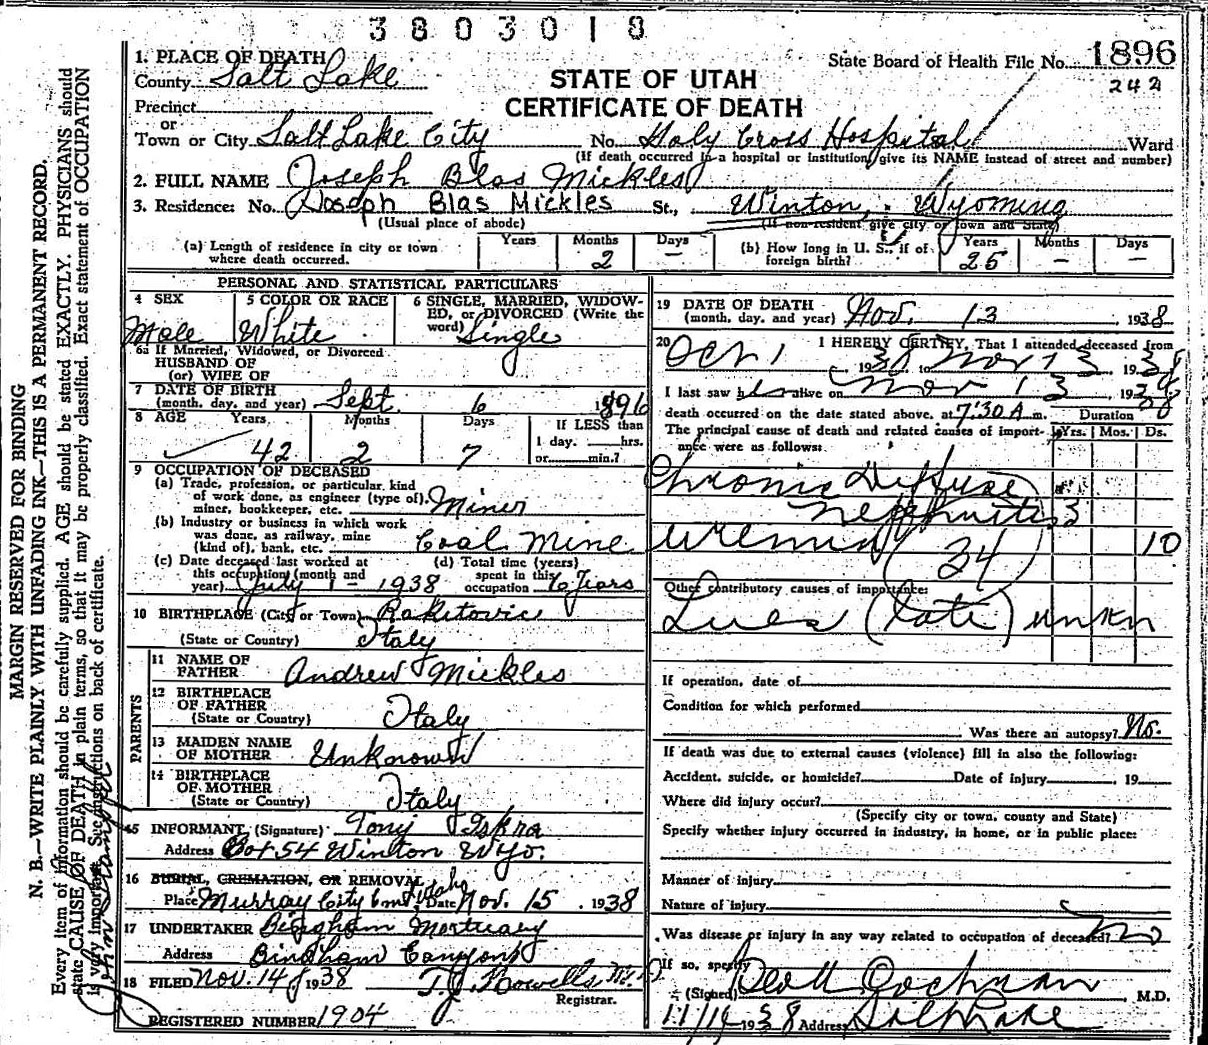 3803018
1896
State Board of Health File No.
242
STATE OF UTAH
CERTIFICATE OF DEATH
1. PLACE OF DEATH
County Salt Lake
Precinct
or
Town or City Salt Lake City No. Holy Cross Hospital Ward
(If death occurred in a hospital or institution, give its NAME instead of street and number)
2. FULL NAME Joseph Blas Mickles
3. Residence: No. Joseph Blas Mickles St., Winton, Wyoming
(Usual place of abode) (If non-resident give city or town and State)
(a) Length of residence in city or town where death occurred. Years Months 2 Days —
(b) How long in U. S., if of foreign birth? Years 25 Months — Days —
PERSONAL AND STATISTICAL PARTICULARS
4 SEX Male
5 COLOR OR RACE White
6 SINGLE, MARRIED, WIDOWED, or DIVORCED (Write the word) Single
6a If Married, Widowed, or Divorced
HUSBAND OF
(or) WIFE OF
7 DATE OF BIRTH
(month, day, and year) Sept. 6 1896
8 AGE Years 42 Months 2 Days 7
If LESS than
1 day. hrs.
or min.?
9 OCCUPATION OF DECEASED
(a) Trade, profession, or particular kind
of work done, as engineer (type of),
miner, bookkeeper, etc. Miner
(b) Industry or business in which work
was done, as railway, mine
(kind of), bank, etc. Coal Mine
(c) Date deceased last worked at
this occupation (month and
year) July 1 - 1938
(d) Total time (years)
spent in this
occupation 6 Years
10 BIRTHPLACE (City or Town) Rakitovic
(State or Country) Italy
PARENTS
11 NAME OF
FATHER Andrew Mickles
12 BIRTHPLACE
OF FATHER
(State or Country) Italy
13 MAIDEN NAME
OF MOTHER Unknown
14 BIRTHPLACE
OF MOTHER
(State or Country) Italy
15 INFORMANT (Signature) Tony Iskra
Address Box 54 Winton Wyo.
16 BURIAL, CREMATION, OR REMOVAL
Place Murray City Cem Utah Date Nov. 15, 1938
17 UNDERTAKER Bingham Mortuary
Address Bingham Canyon
18 FILED Nov. 14, 1938 T. J. Howells M.D.
Registrar.
REGISTERED NUMBER 1904
19 DATE OF DEATH
(month, day, and year) Nov. 13, 1938
20 I HEREBY CERTIFY, That I attended deceased from
Oct 1, 1938 to Nov 13, 1938
I last saw h alive on Nov 13, 1938
death occurred on the date stated above, at 7:30 A m. Duration
The principal cause of death and related causes of importance were as follows: Yrs. Mos. Ds.
Chronic Diffuse
Nephritis 3
Uremia 10
(34)
Other contributory causes of importance:
Lues (late) unkn
If operation, date of
Condition for which performed
Was there an autopsy? No.
If death was due to external causes (violence) fill in also the following:
Accident, suicide, or homicide? Date of injury , 19
Where did injury occur?
(Specify city or town, county and State)
Specify whether injury occurred in industry, in home, or in public place:
Manner of injury
Nature of injury
Was disease or injury in any way related to occupation of deceased? No
If so, specify
(Signed) M.D.
11/14 1938 Address Salt Lake
MARGIN RESERVED FOR BINDING
N. B.—WRITE PLAINLY WITH UNFADING INK—THIS IS A PERMANENT RECORD.
Every item of information should be carefully supplied. AGE should be stated EXACTLY. PHYSICIANS should
state CAUSE OF DEATH in plain terms, so that it may be properly classified. Exact statement of OCCUPATION
is very important. See instructions on back of certificate.